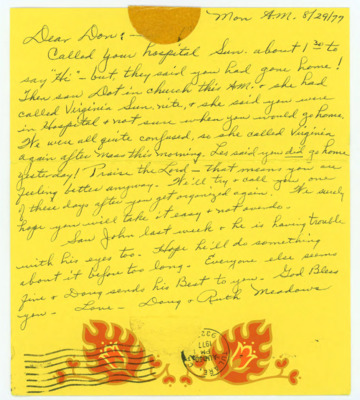 Mon A.M. 8/29/77
Dear Don: -
Called your hospital Sun. about 1 30 to
say "Hi" - but they said you had gone home!
Then saw Dot in church this AM. & she had
called Virginia Sun. nite, & she said you were
in Hospital & not sure when you would go home.
We were all quite confused, so she called Virginia
again after mass this morning. Les said you did go home
yesterday! Praise the Lord - that means you are
feeling better anyway. We'll try & call you one
of these days after you get organized again. We surely
hope you will take it easy & not overdo.
Saw John last week & he is having trouble
with his eyes too. Hope he'll do something
about it before too long. Everyone else seems
fine & Doug sends his Best to you. God Bless
you - Love - Doug & Ruth Meadows
PM
1977